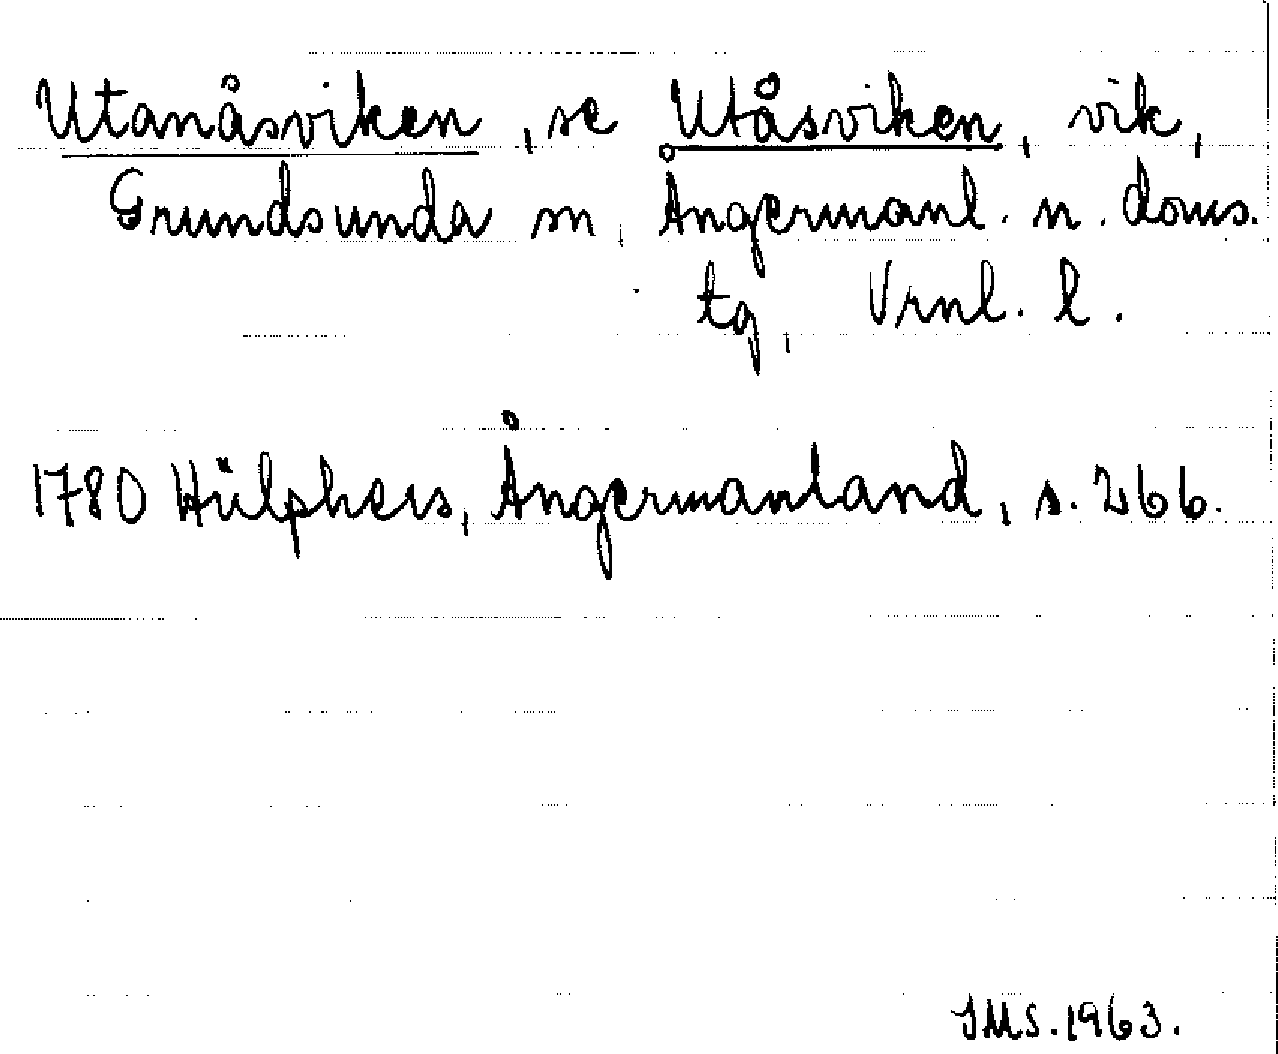 Utanåsviken, se Utåsviken, vik,
Grundsunda sn, Ångermanl. n. doms.
tg, Vrnl. l.
1780 Hülphers, Ångermanland, s. 266.
SMS. 1963.